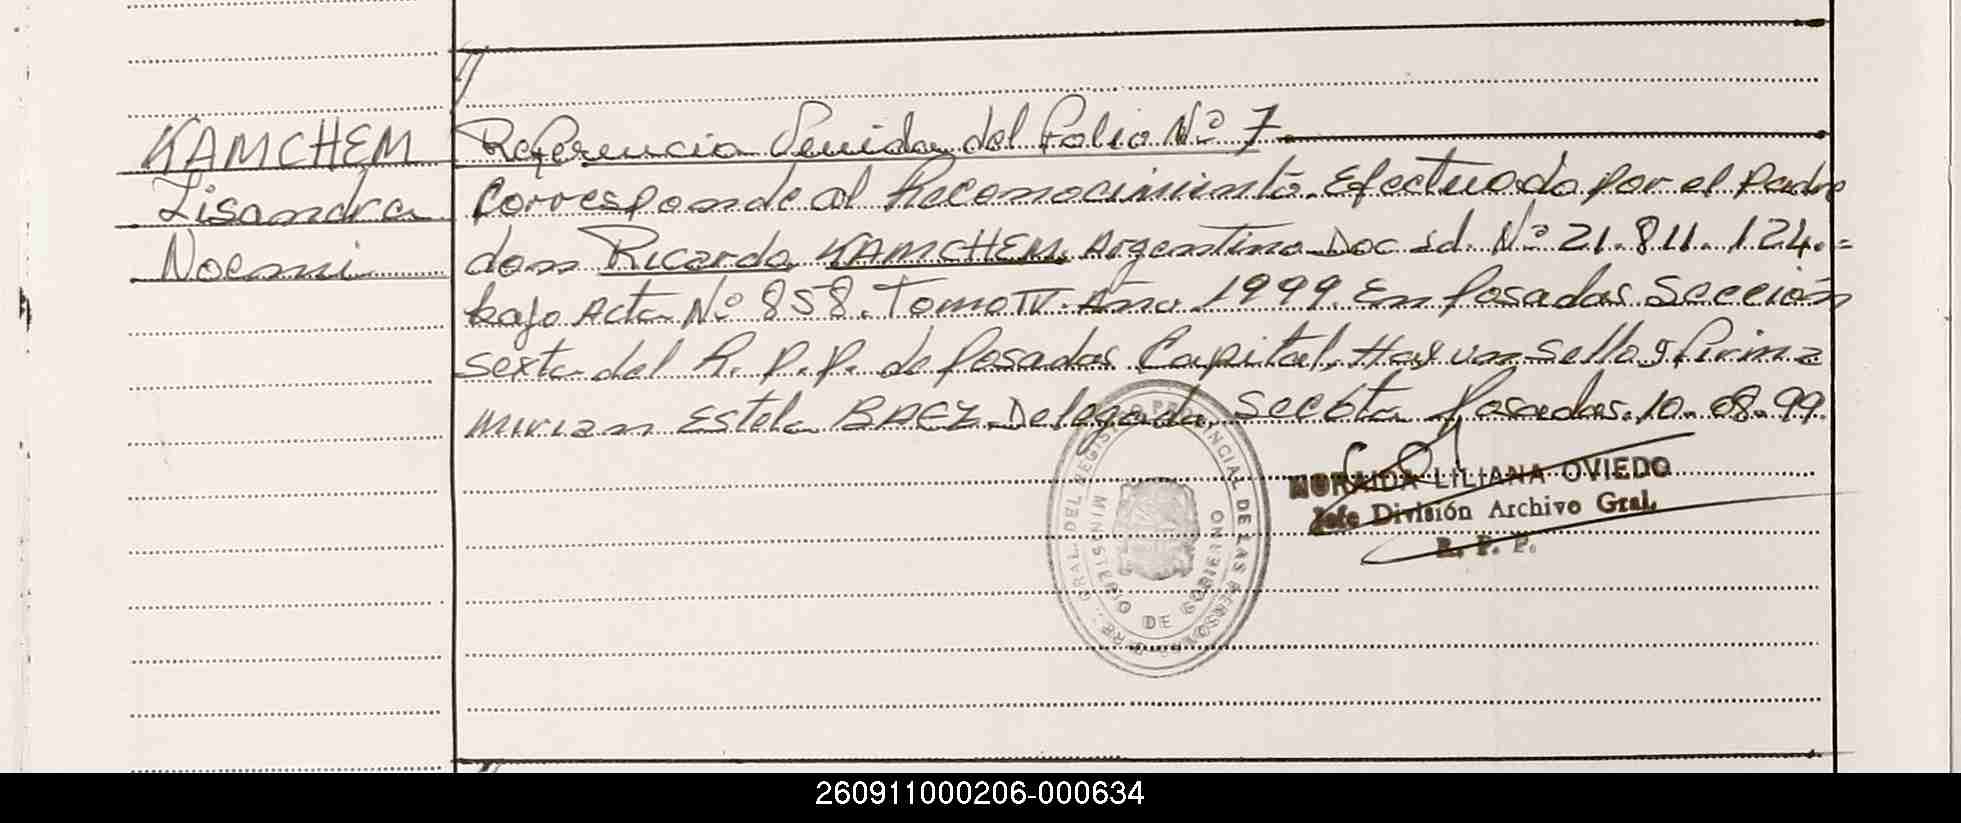 KAMCHEM
Lisandra
Noemi
Referencia Venida del Folio Nº 7
Corresponde al Reconocimiento Efectuado por el padre
don Ricardo KAMCHEM Argentino Doc id. Nº 21.811.124.=
bajo Acta Nº 858. Tomo IV. Año 1999. En Posadas Sección
sexta del R. P. P. de Posadas Capital. Hay un sello y firma
Mirian Estela BAEZ Delegada Posadas. 10. 08. 99.
REG. GRAL. DEL REGISTRO PROVINCIAL DE LAS PERSONAS
MINISTERIO DE GOBIERNO
LILIANA OVIEDO
Jefe División Archivo Gral.
R. P. P.
260911000206-000634